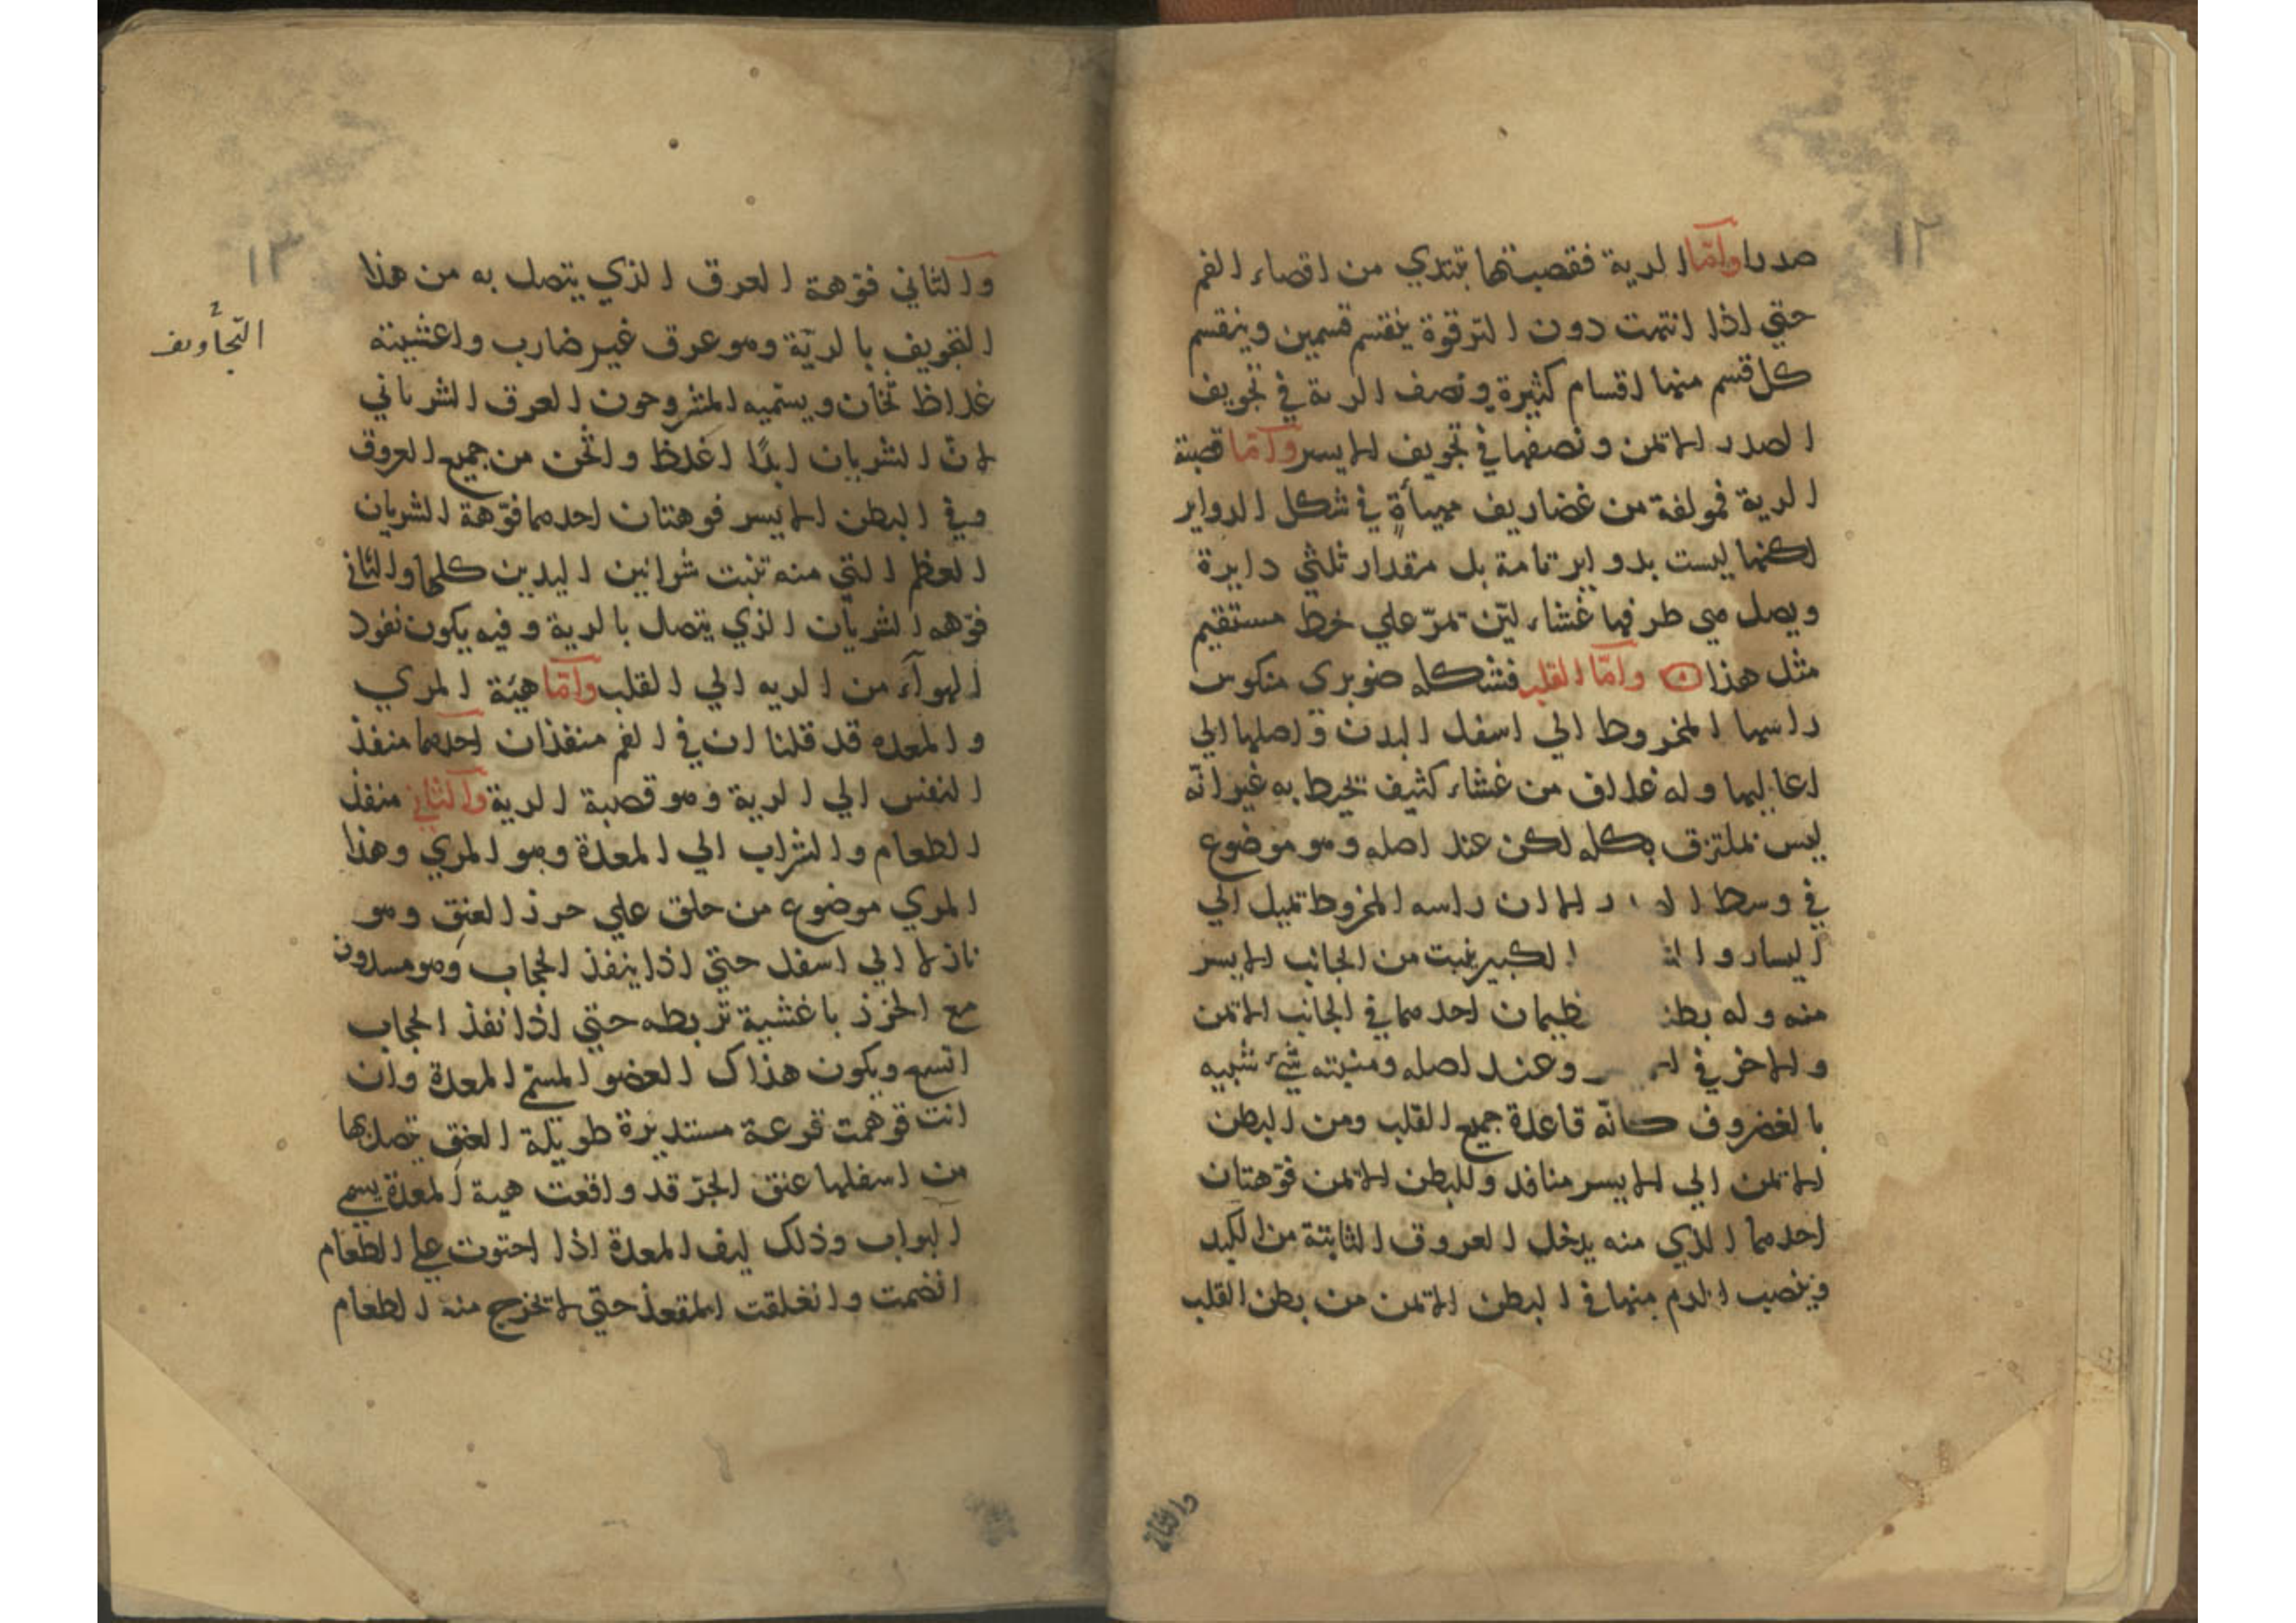 ١٢
صدرا وامّا الرية فقصبتها تبتدي من اقصاء الفم
حتي اذا انتهت دون الترقوة ينقسم قسمين وينقسم
كل قسم منها اقسام كثيرة ونصف الرية في تجويف
الصدر الايمن ونصفها في تجويف الايسر وامّا قصبة
الرية فمولفة من غضاريف مهيأة في شكل الدواير
لكنها ليست بدواير تامة بل مقدار ثلثي دايرة
ويصل بين طرفيها غشاء ليّن تمرّ علي خط مستقيم
مثل هذا وامّا القلب فشكله صنوبري منكوس
راسها المخروط الي اسفل البدن واصلها الي
اعاليها وله غلاف من غشاء كثيف تحيط به غير انّه
ليس بملتزق بكله لكن عند اصله وهو موضوع
في وسط الا ان راسه المخروط تميل الي
اليسار و الكبير ينبت من الجانب الايسر
منه وله احدهما في الجانب الايمن
والاخر في وعند اصله ومنبته شيء شبيه
بالغضروف كانّه قاعدة جميع القلب ومن البطن
الايمن الي الايسر منافد وللبطن الايمن فوّهتان
احدهما الذي منه يدخل العروق الثابتة من الكبد
وينصب الدم منها في البطن الايمن من بطن القلب
والثاني
١٣
والثاني فوّهة العرق الذي يتصل به من هذا
التجويف بالريّة وهو عرق غير ضارب واغشيته
التجاويف
غلاظ ثخان ويسميه المشروحون العرق الشرياني
لانّ الشريان ابدًا اغلظ واثخن من جميع العروق
وفي البطن الايسر فوهتان احدهما فوّهة الشريان
العظم التي منه تنبت شرانين اليدين كلها والثاني
فوّهه الشريان الذي يتصل بالرية وفيه يكون نفود
الهوآء من الريه الي القلب وامّا هيئة المري
والمعده قد قلنا ان في الفم منفذان احدهما منفذ
النفس الي الرية وهو قصبة الرية والثاني منفذ
الطعام والشراب الي المعدة وهو المري وهذا
المري موضوع من حلق علي حرز العنق وهو
نازلا الي اسفل حتي اذا ينفذ الحجاب وهو مسدود
مع الخرز باغشية تربطه حتي اذا نفذ الحجاب
اتسع ويكون هذاك العضو المسمّي المعدة وان
انت توهمت قرعة مستديرة طويلة العنق تصل بها
من اسفلها عنق الجرّ قد واقعت هية المعدة يسمي
البواب وذلك ليف المعدة اذا احتوت علي الطعام
انضمت وانغلقت المقعد حتي لا تخرج منه الطعام